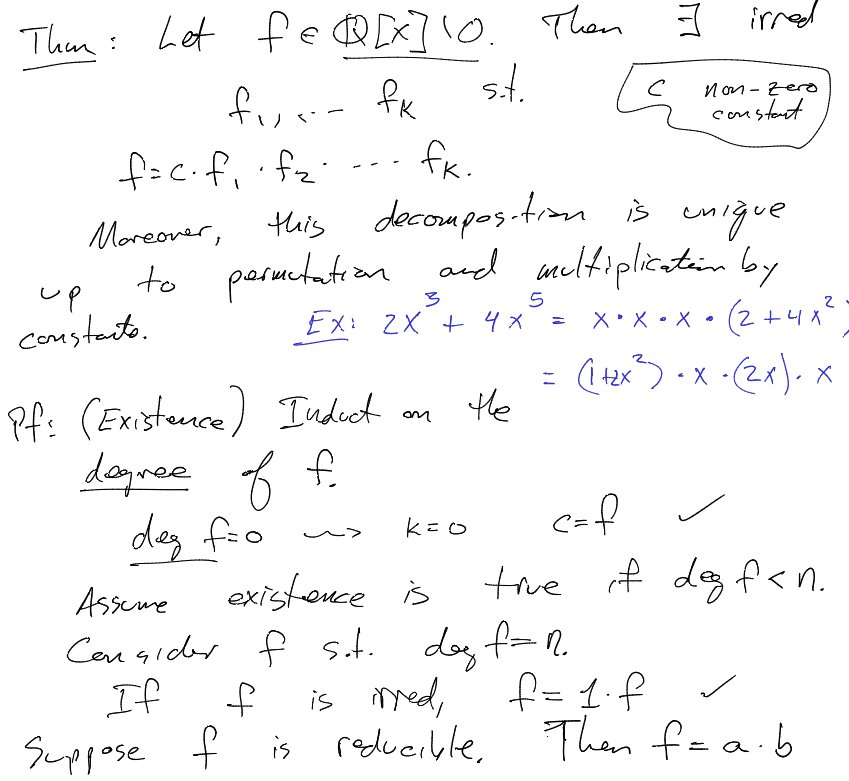 Thm: Let f ∈ ℚ[x]\0. Then ∃ irred
f₁, ... f_K s.t.
c non-zero
constant
f = c · f₁ · f₂ · ... f_K.
Moreover, this decomposition is unique
up to permutation and multiplication by
constants.
Ex: 2x³ + 4x⁵ = x · x · x · (2 + 4x²)
= (1+2x²) · x · (2x) · x
Pf: (Existence) Induct on the
degree of f.
deg f = 0 ⇝ k = 0 c = f ✓
Assume existence is true if deg f < n.
Consider f s.t. deg f = n.
If f is irred, f = 1 · f ✓
Suppose f is reducible. Then f = a · b